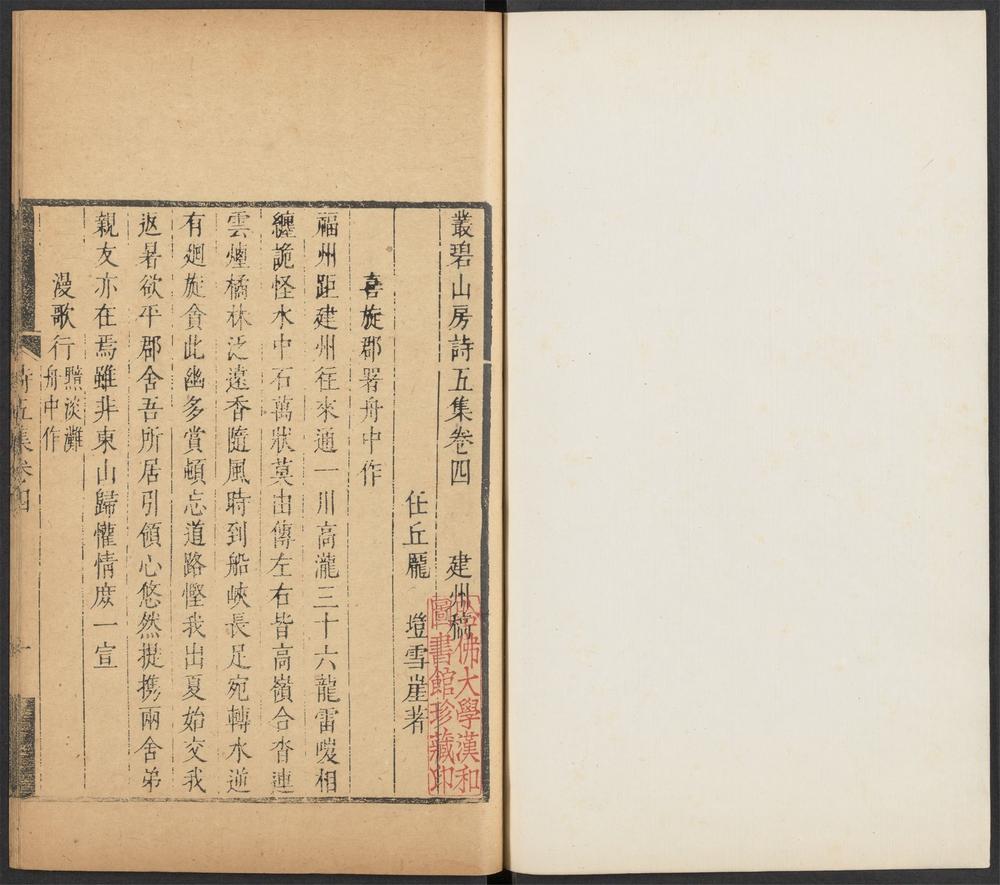 叢碧山房詩五集卷四　建州稿
任丘龎　塏雪崖著
喜旋郡署舟中作
福州距建州往來通一川高瀧三十六龍雷嗳相
纏詭怪水中石萬狀莫由傳左右皆高嶺合沓連
雲煙橘林泛遠香隨風時到船峽長足宛轉水逆
有廻旋貪此幽多賞頓忘道路慳我出夏始交我
返暑欲平郡舍吾所居引領心悠然提携兩舍弟
親友亦在焉雖非東山歸懽情庶一宣
漫歌行
黯淡灘
舟中作
詩五集卷四
一
哈佛大學漢和
圖書館珍藏印